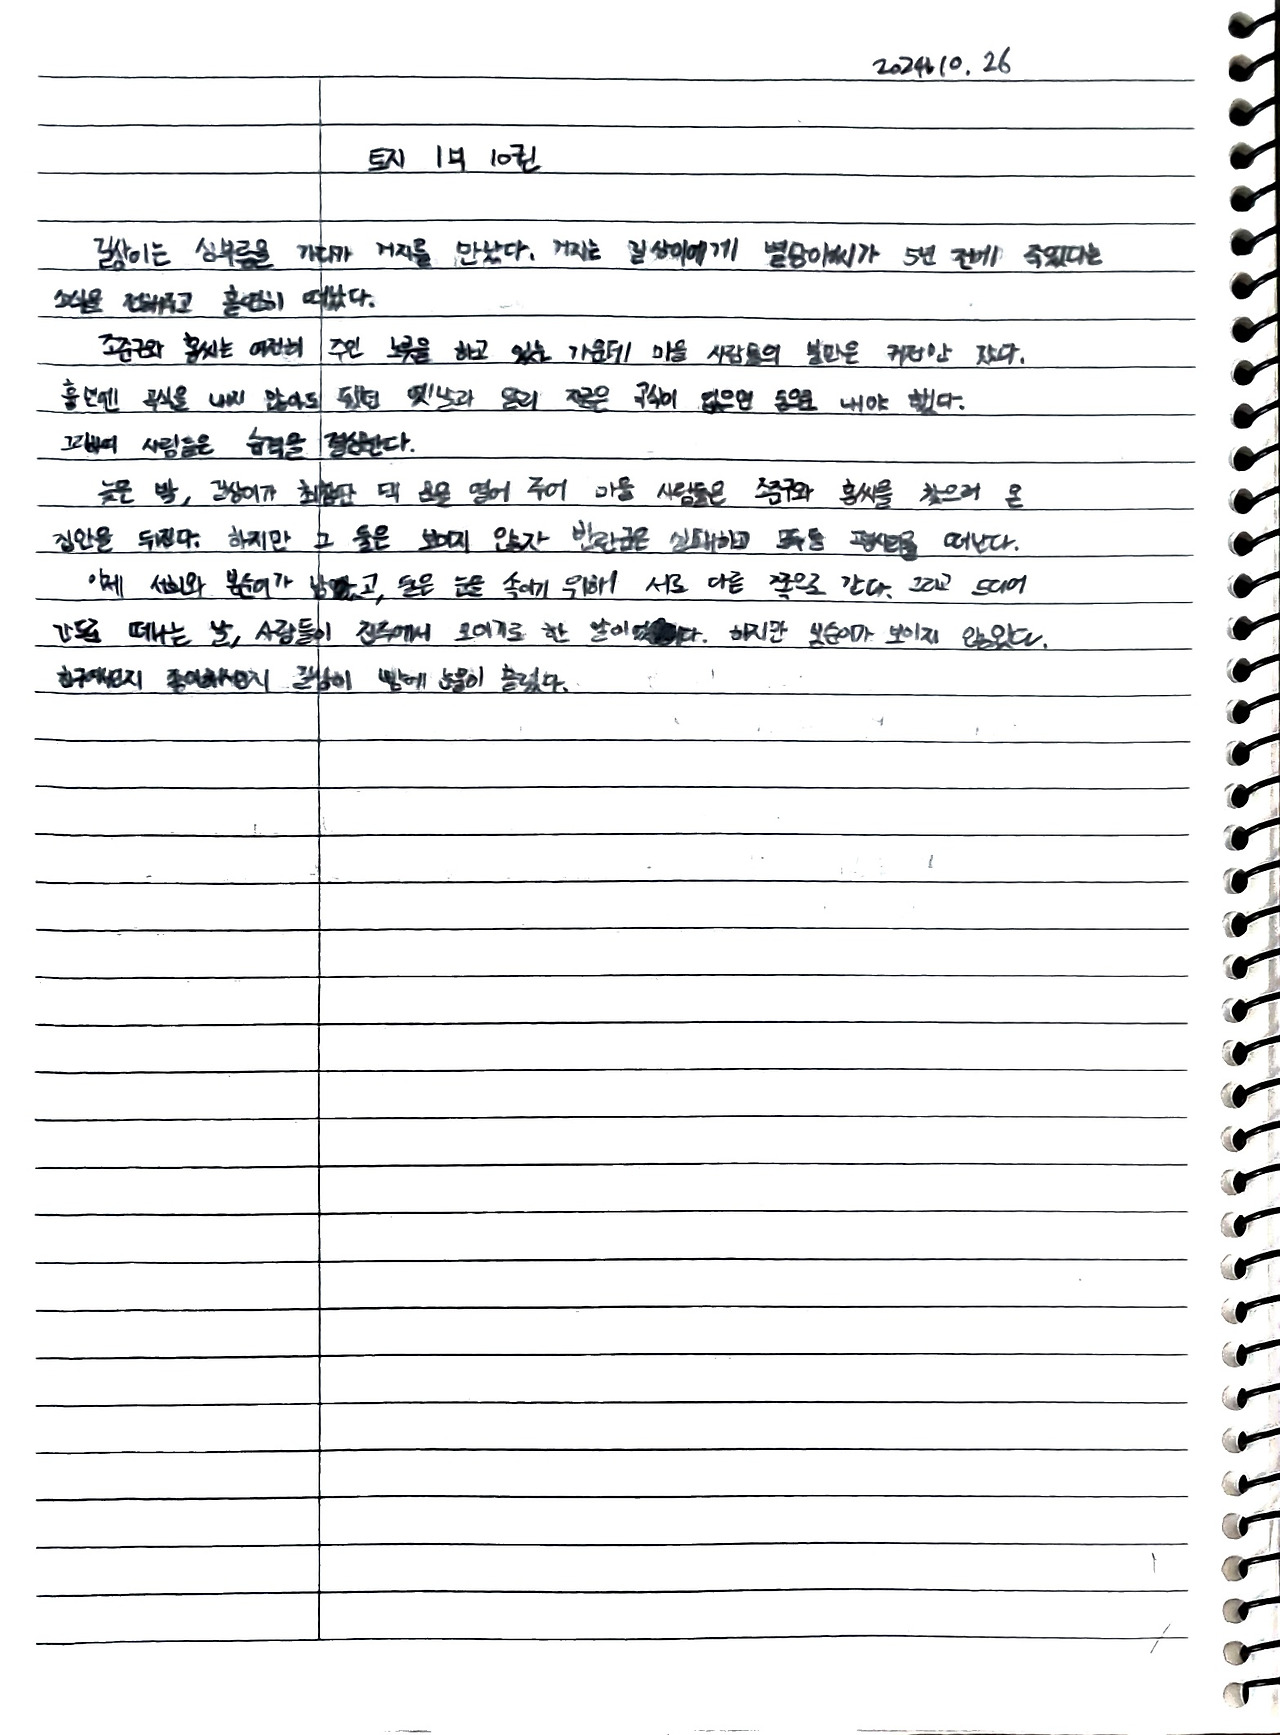 2024. 10. 26
토지 1부 10권
길상이는 심부름을 가다가 거지를 만났다. 거지는 길상이에게 별당아씨가 5년 전에 죽었다는
소식을 전해주고 홀연히 떠났다.
조준구와 홍씨는 여전히 주인 노릇을 하고 있는 가운데 마을 사람들의 불만은 커져만 갔다.
흉년엔 곡식을 내지 않아도 됐던 옛날과 달리 지금은 곡식이 없으면 돈으로 내야 했다.
사람들은 습격을 결심한다.
늦은 밤, 길상이가 최참판 댁 문을 열어 주어 마을 사람들은 조준구와 홍씨를 찾으러 온
집안을 뒤진다. 하지만 그 둘은 보이지 않자 반란군은 실패하고 모두들 평사리를 떠난다.
이제 서희와 봉순이가 남았고, 둘은 눈을 속이기 위해 서로 다른 쪽으로 간다. 그리고 드디어
간도로 떠나는 날, 사람들이 진주에서 모이기로 한 날이었다. 하지만 봉순이가 보이지 않았다.
길상이 뺨에 눈물이 흘렀다.